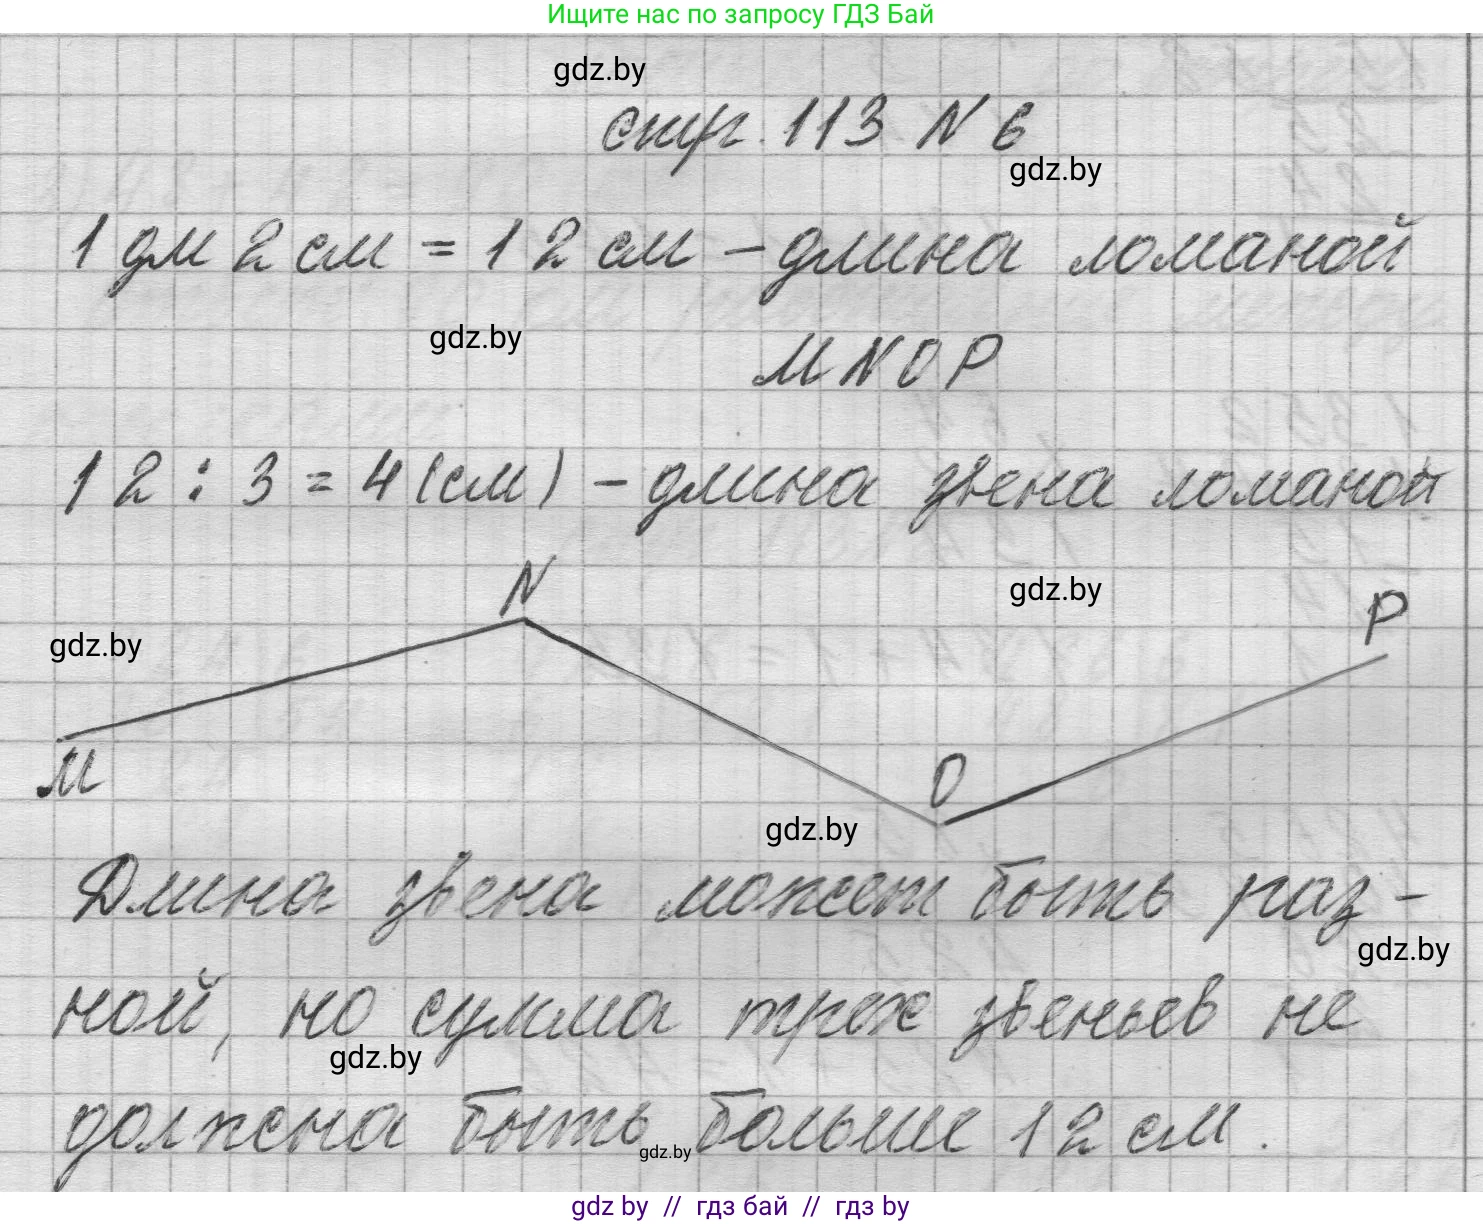 Ищите нас по запросу ГДЗ Бай
gdz.by
стр. 113 N 6
gdz.by
1 дм 2 см = 12 см – длина ломаной
gdz.by
MNOP
12 : 3 = 4 (см) – длина звена ломаной
N
gdz.by
P
gdz.by
M
O
gdz.by
Длина звена может быть раз-
gdz.by
ной, но сумма трех звеньев не
gdz.by
должна быть больше 12 см.
gdz.by
gdz by // гдз бай // гдз by